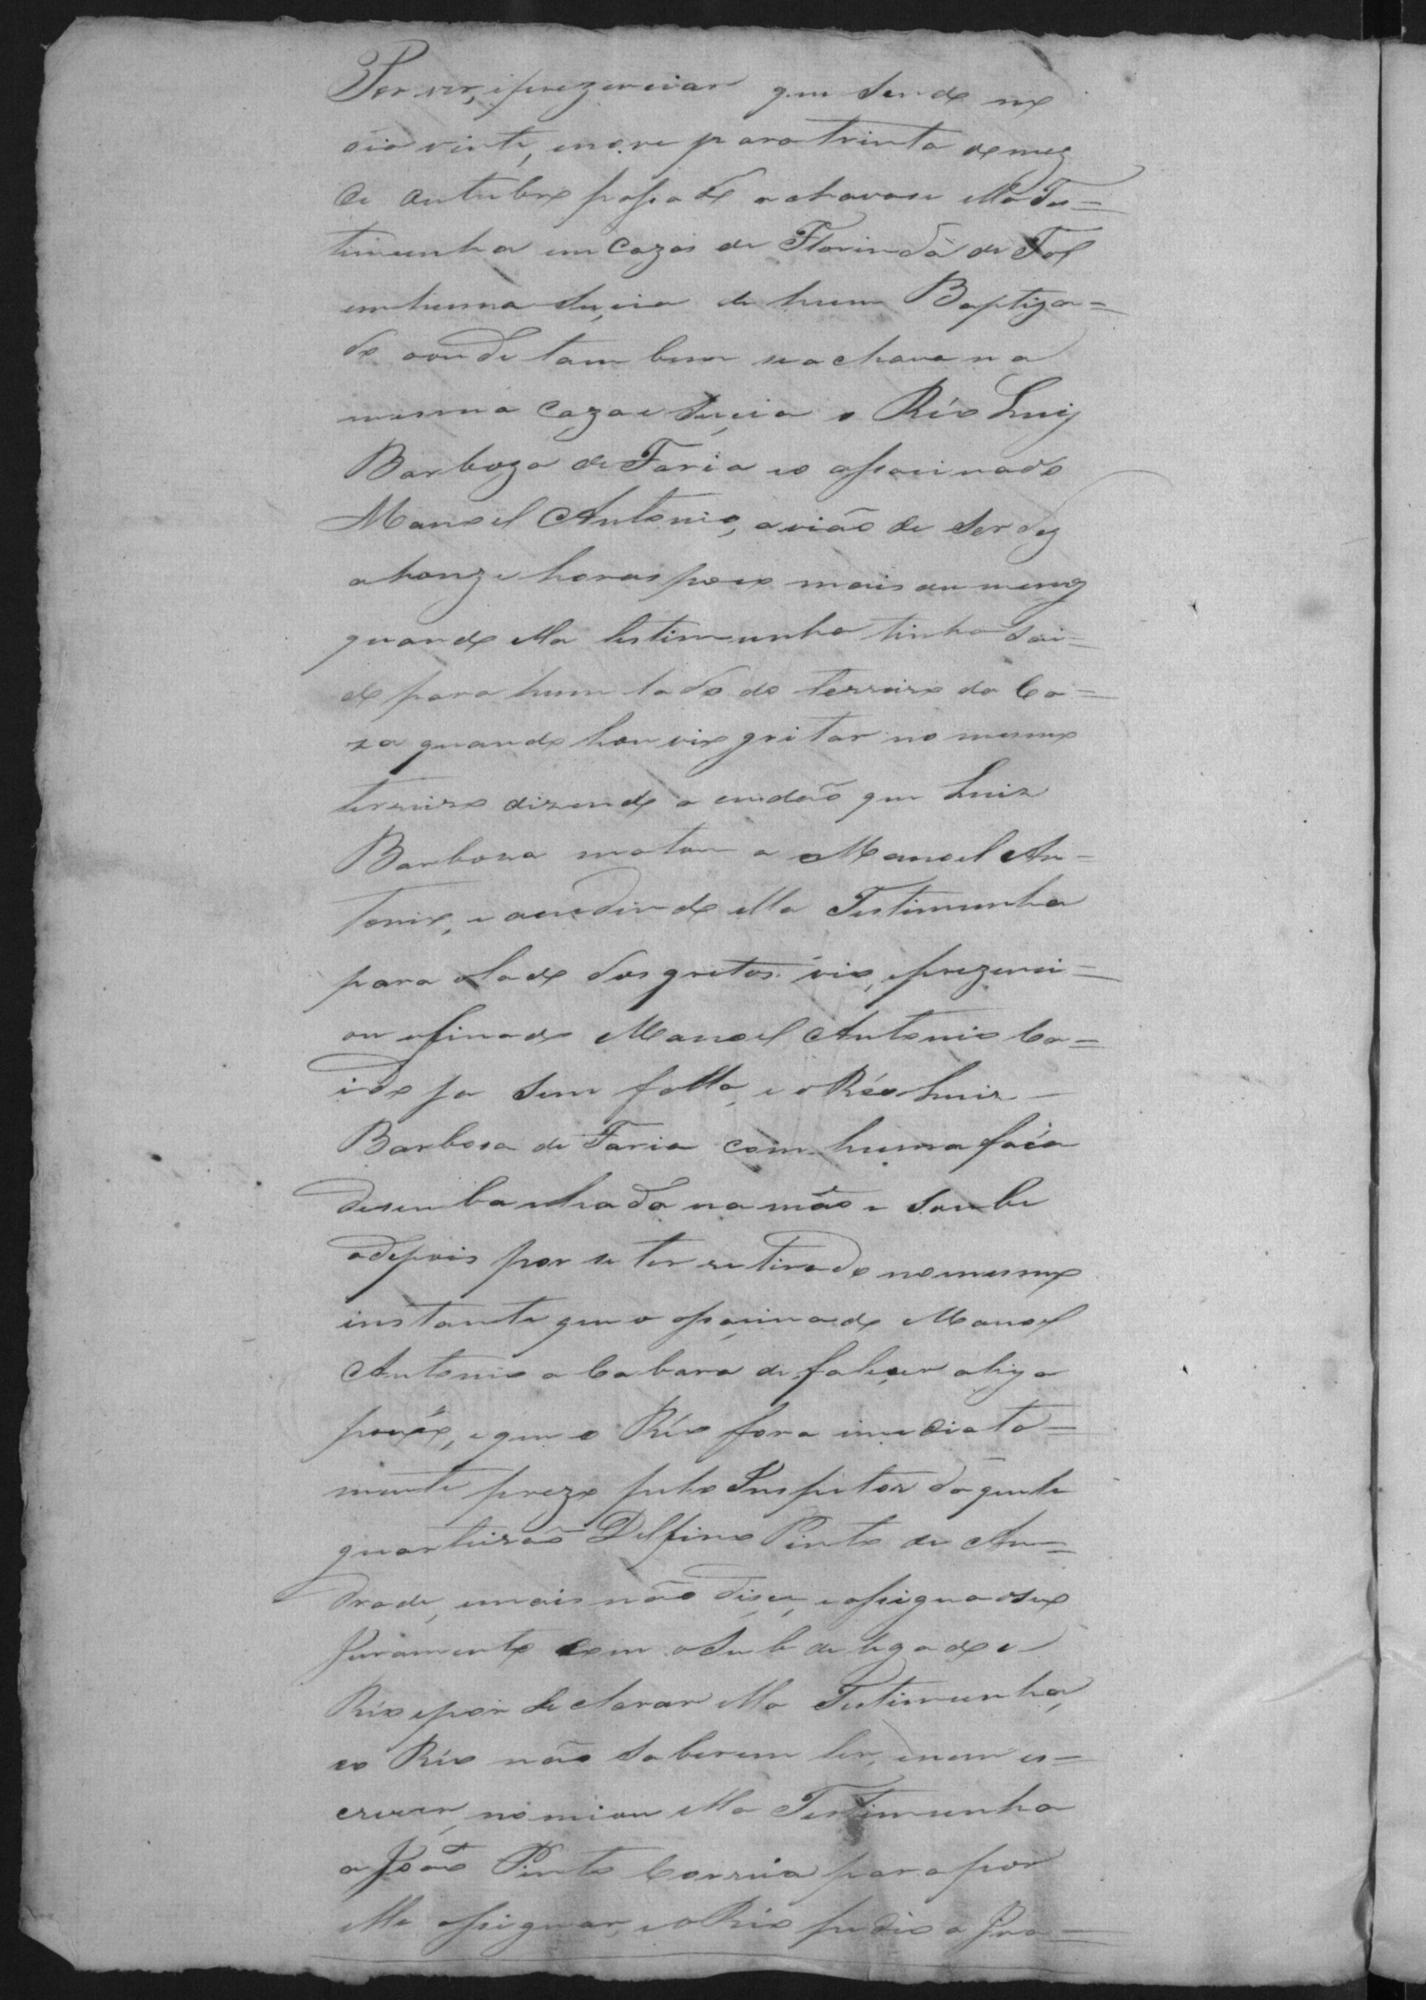 Por ver, eprezenciar que sendo no
dia vinte, enove para trinta do mez
de Outubro passado achavase ella Tes=
timunha em Cazas de Florinda de Tal
em huma Sucia de hum Baptiza=
do aonde tam bem se achava na
mesma Caza e Sucia o Réo Luiz
Barboza de Faria eo assacinado
Manoel Antonio, avião de Ser dez
a honze horas poco mais ou menoz
quando ella testimunha tinha Sai=
do para hum lado do terreiro da Ca=
za quando houvio gritar no mesmo
terreiro dizendo a cudão que Luiz
Barboza matou a Manoel An=
tonio, e acudindo ella Testimunha
para olado dos gritos vio, eprezenci=
ou ofinado Manoel Antonio Ca=
ido ja Sem falla, e o Réo Luiz
Barboza de Faria com huma faca
desembainhada na mão e Soube
adepois por se ter retirado nomesmo
instante que o assacinado Manoel
Antonio a Cabara de falecer
e que o Réo fora imediata=
mente prezo pelo Inspetor daquele
quarteirão Delfino Pinto de An=
drade, emais não dise, eassignaoseu
Juramento Com oSub de legado e
Réo epor de clarar ella Testimunha,
eo Réo não Saberem ler, enem es=
crever, nomiou ella Testimunha
a João Pinto Correia para por
ella assignar, eoRéo pedio a Joa=